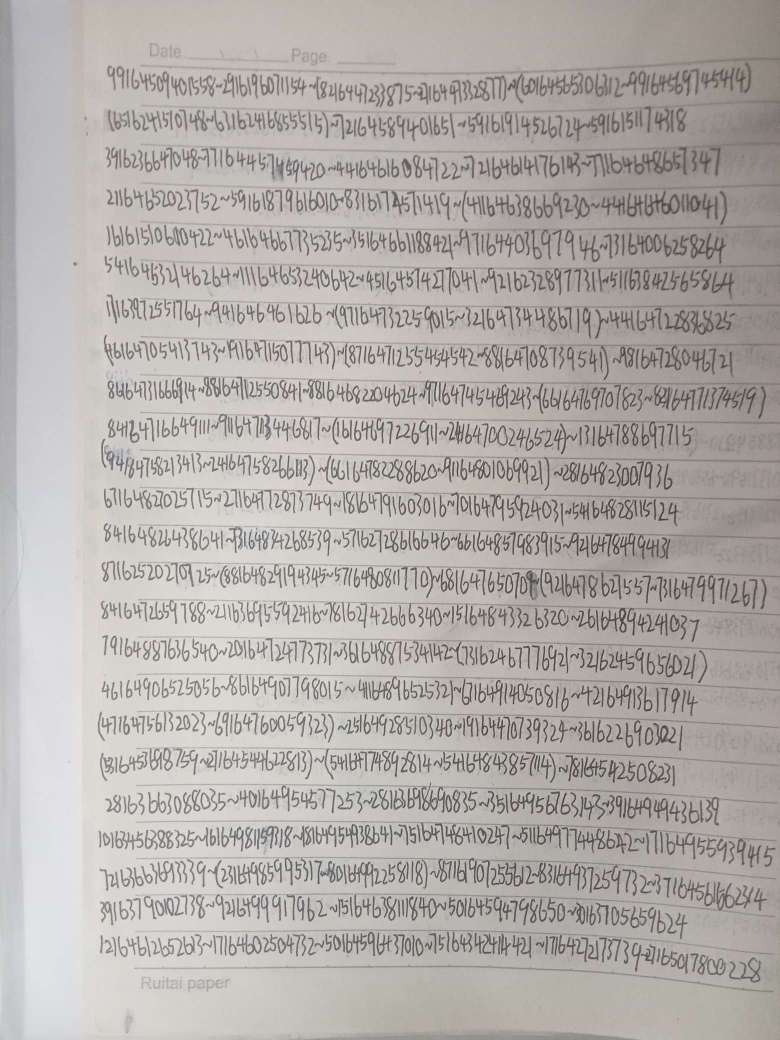 Date Page
991645094015 58~291619607 1154~(821644723 3875~2164 9733 2877)~(601645653063 12~991645697454 14)
(651624 1570748~631624 1685 5515)~721645894016 51~591619145267 24~591615 1174318
391623664 7048~771644457 159420~441646160 84722~721646141761 43~771646486573 47
211646520237 52~591618796160 10~831617 4571419~(411646386692 30~441646460 11041)
161615106004 22~461646667735 235~351646611884 21~971644036979 46~731640062582 64
541646532146264~111646532406 42~451645742770 41~921623289773 11~511638425658 64
1716397255 1764~941646461 626~(971647322590 15~321647344867 19)~441647228368 25
(461647054137 43~191647150777 43)~(871647125545 4542~881647087395 41)~981647280467 21
861647316669 14~881647112550841~881646822046 24~971647454692 43~(661647697078 23~821647713745 19)
841647166491 11~911647134468 17~(161646972269 11~241647002465 24)~131647886977 15
(941847582134 13~241647582661 13)~(661647822886 20~911648010699 21)~281648230079 36
671648270257 15~271647728737 49~181647916030 16~701647959240 31~541648281151 24
841648264386 41~731648342685 39~571627286166 46~661648579839 15~921647849941 31
871625202709 25~(881648291943 45~571648081177 0)~68164765070 9~(921647862715 57~731647997126 7)
841647265978 8~211636955924 16~781627426663 40~151648433263 20~261648942410 37
791648876365 40~201647247737 31~361648875341 42~(731624677769 21~321624596560 21)
461649065250 56~861649077980 15~411648965253 21~671649140508 16~421649136179 14
(471647561320 23~691647600593 23)~251649285103 40~191644707393 24~361622690302 1
(531645369187 59~271645446228 13)~(541647748928 14~541648438571 14)~781645425082 31
281636630880 35~401649545772 53~281636986908 35~351649567631 43~391649494361 39
101634563883 25~161649811593 18~181649549386 41~751647484102 47~511649774486 42~171649559394 15
721636636933 39~(231649859953 17~801649922581 18)~871619072556 12~831649372597 32~371645615662 314
391637901027 38~921649991796 2~151646381118 40~501645947986 50~301637056596 24
121646126526 13~171646025047 32~501645964370 10~751643424144 21~171642721737 39~271650178002 28
Ruitai paper